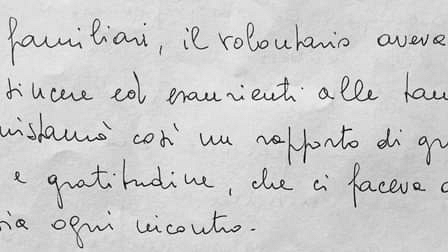 familiari, il volontario aveva
sincere ed esaurienti alle
così un rapporto di
e gratitudine, che ci faceva
ogni incontro.